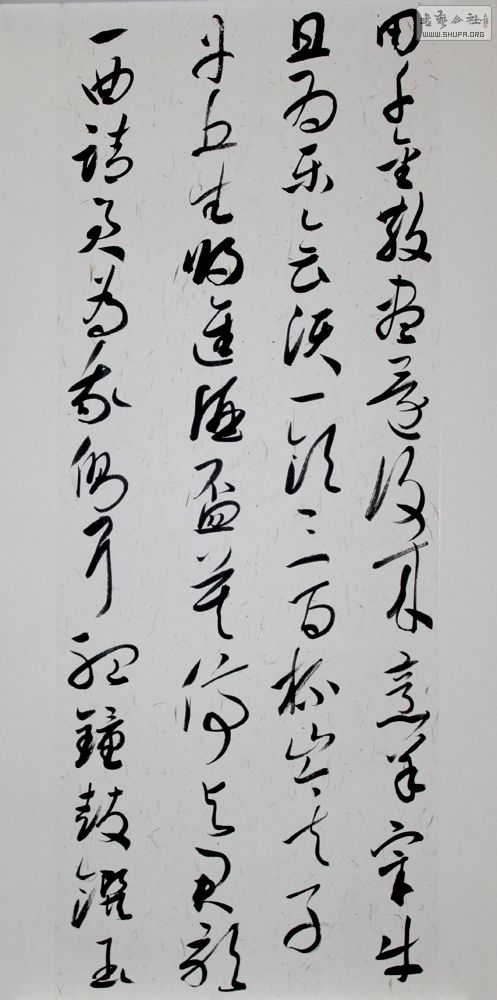 用千金散盡還復來烹羊宰牛
且為樂會須一飲三百杯岑夫子
丹丘生將進酒盃莫停與君歌
一曲請君為我側耳聽鐘鼓饌玉
書藝公社
WWW.SHUFA.ORG